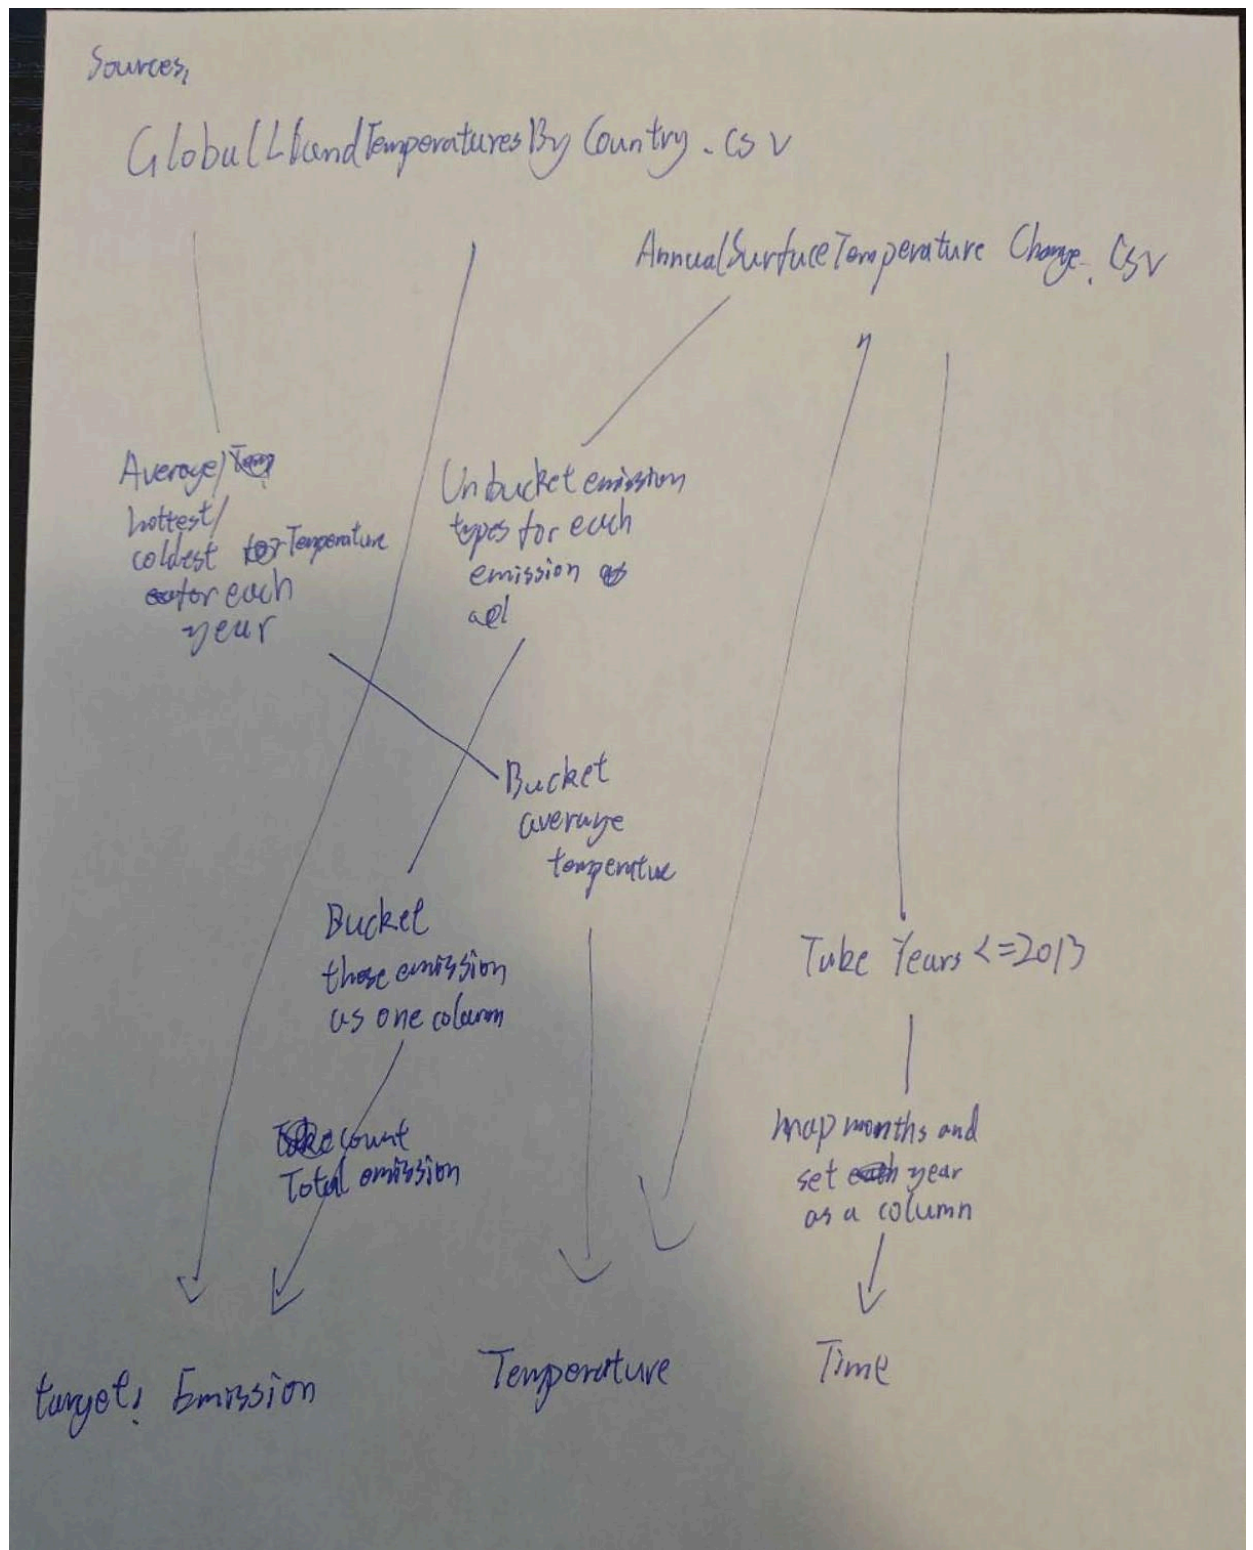 Sources,
GlobalLandTemperaturesByCountry.csv
AnnualSurfaceTemperature Change.csv
Average/
hottest/
coldest Temperature
for each
year
Unbucket emission
types for each
emission
Bucket
average
temperature
Bucket
those emission
as one column
count
Total emission
Take Years <=2013
map months and
set year
as a column
target: Emission
Temperature
Time